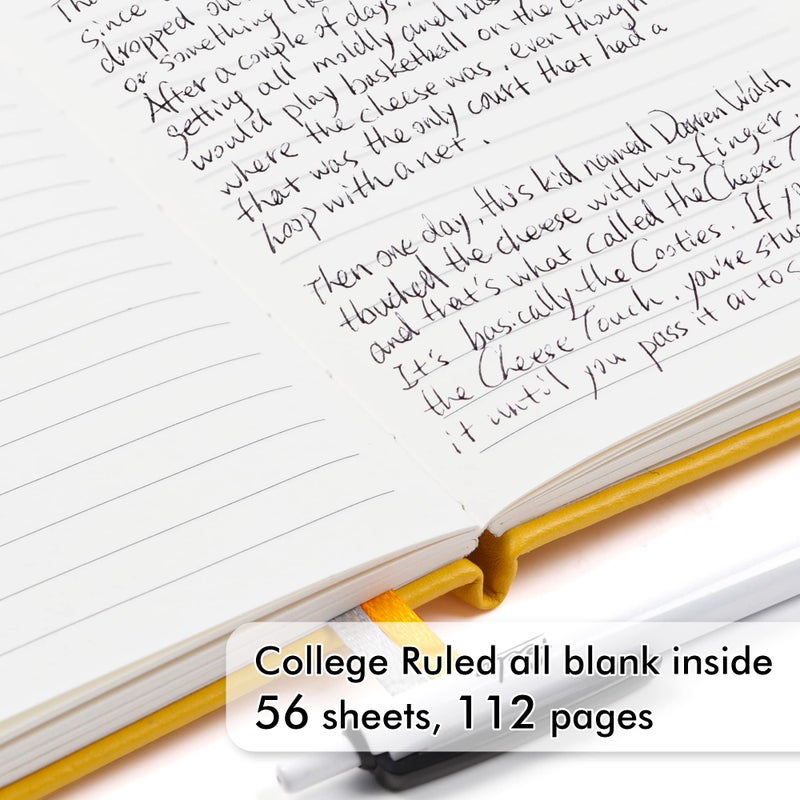 Th
since
dropped ou
or something li
After a couple of days,
getting all moldly and nas
would play basketball on the co
where the cheese was, even though
that was the only court that had a
hoop with a net.
Then one day, this kid named Darren Walsh
touched the cheese with his finger,
and that's what called the Cheese T
It's basically the Cooties. If yo
the Cheese Touch, you're stuc
it until you pass it on to s
College Ruled all blank inside
56 sheets, 112 pages